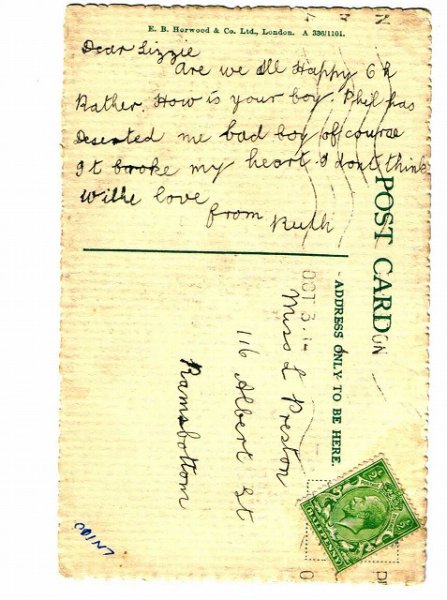 E. B. Horwood & Co. Ltd., London. A 336/1101.
Dear Lizzie
Are we all Happy Oh
Rather. How is your boy. Phil has
deserted me bad boy off course
It broke my heart I dont think
With love
from Ruth
POST CARD
ADDRESS ONLY TO BE HERE.
OCT 3. 14
Miss L Preston
116 Albert St
Ramsbottom
HALFPENNY